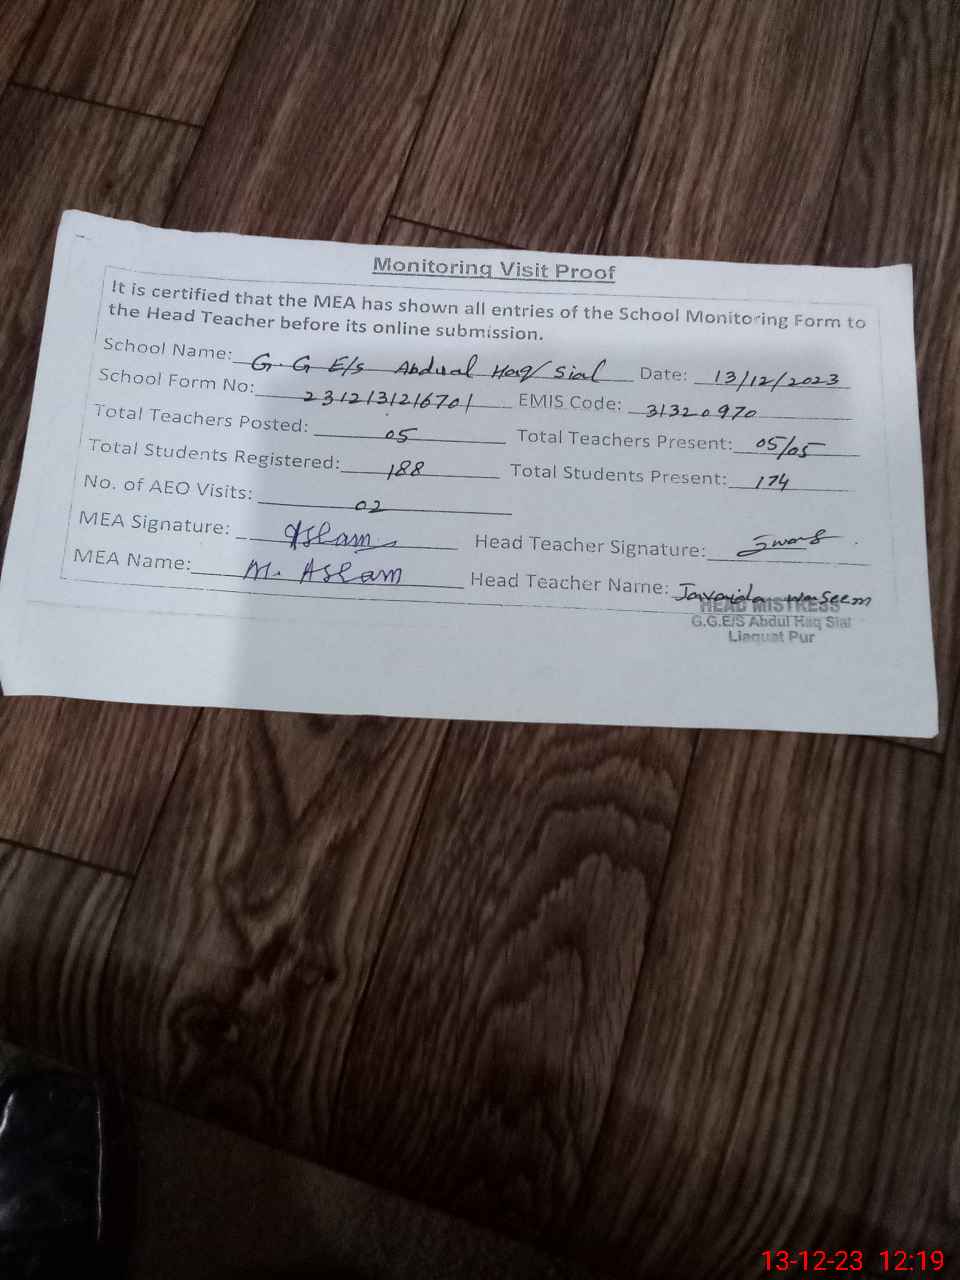 Monitoring Visit Proof
It is certified that the MEA has shown all entries of the School Monitoring Form to
the Head Teacher before its online submission.
School Name: G. G E/s Abdual Haq Sial Date: 13/12/2023
School Form No: 2312131216701 EMIS Code: 31320970
Total Teachers Posted: 05 Total Teachers Present: 05/05
Total Students Registered: 188 Total Students Present: 174
No. of AEO Visits: 02
MEA Signature: Aslam Head Teacher Signature:
MEA Name: M. Aslam Head Teacher Name: Javaida waseem
HEAD MISTRESS
G.G.E/S Abdul Haq Sial
Liaquat Pur
13-12-23 12:19